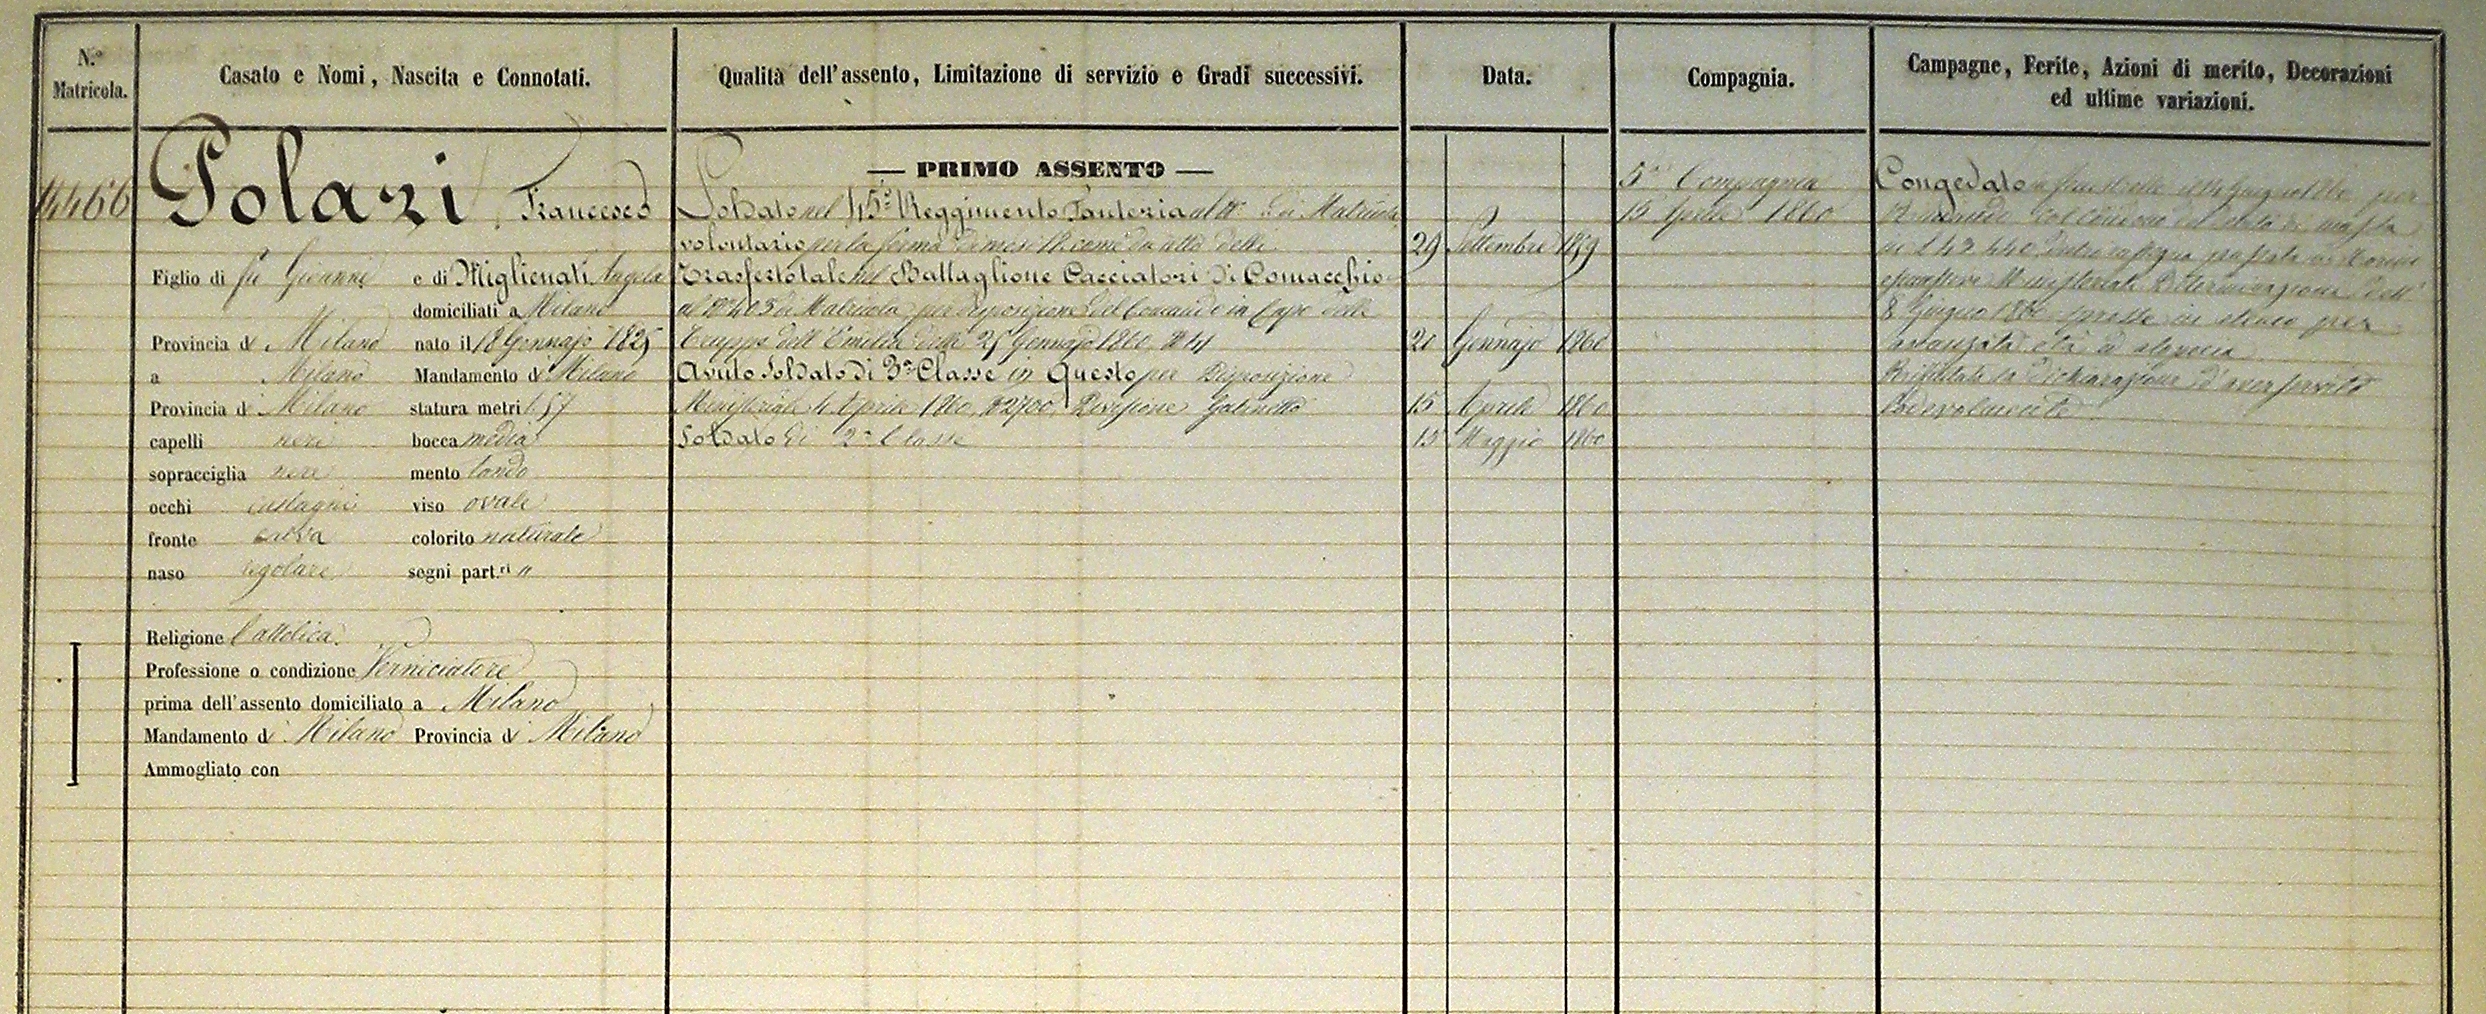 N.º Matricola.
Casato e Nomi, Nascita e Connotati.
Qualità dell'assento, Limitazione di servizio e Gradi successivi.
Data.
Compagnia.
Campagne, Ferite, Azioni di merito, Decorazioni
ed ultime variazioni.
4466
Polazi Francesco
Figlio di fu Giovanni e di Miglienati Angela
domiciliati a Milano
Provincia di Milano nato il 18 Gennajo 1825
a Milano Mandamento di Milano
Provincia di Milano statura metri 1.57
capelli neri bocca media
sopracciglia nere mento tondo
occhi castagni viso ovale
fronte naso regolare colorito naturale
segni part.ri "
Religione Cattolica.
Professione o condizione Verniciatore
prima dell'assento domiciliato a Milano
Mandamento di Milano Provincia di Milano
Ammogliato con
— PRIMO ASSENTO —
Soldato nel 45º Reggimento Fanteria al Nº di Matricola
volontario per la ferma di mesi 18 come da atto delli 29 Settembre 1859
Trasferto tale nel Battaglione Cacciatori di Comacchio
al Nº 403 di Matricola per disposizione del Comando in Capo delle
Truppe dell'Emilia delli 25 Gennajo 1860 Nº 44 21 Gennajo 1860
Avuto Soldato di 3ª Classe in Questo per Disposizione
Ministeriale 4 Aprile 1860 Nº 2700, Divisione Gabinetto 15 Aprile 1860
Soldato di 2ª Classe 15 Maggio 1860
5ª Compagnia
15 Aprile 1860
Congedato
8 Giugno 1860 per
avanzata età
Rifiutata la dichiarazione d'aver servito
lodevolmente